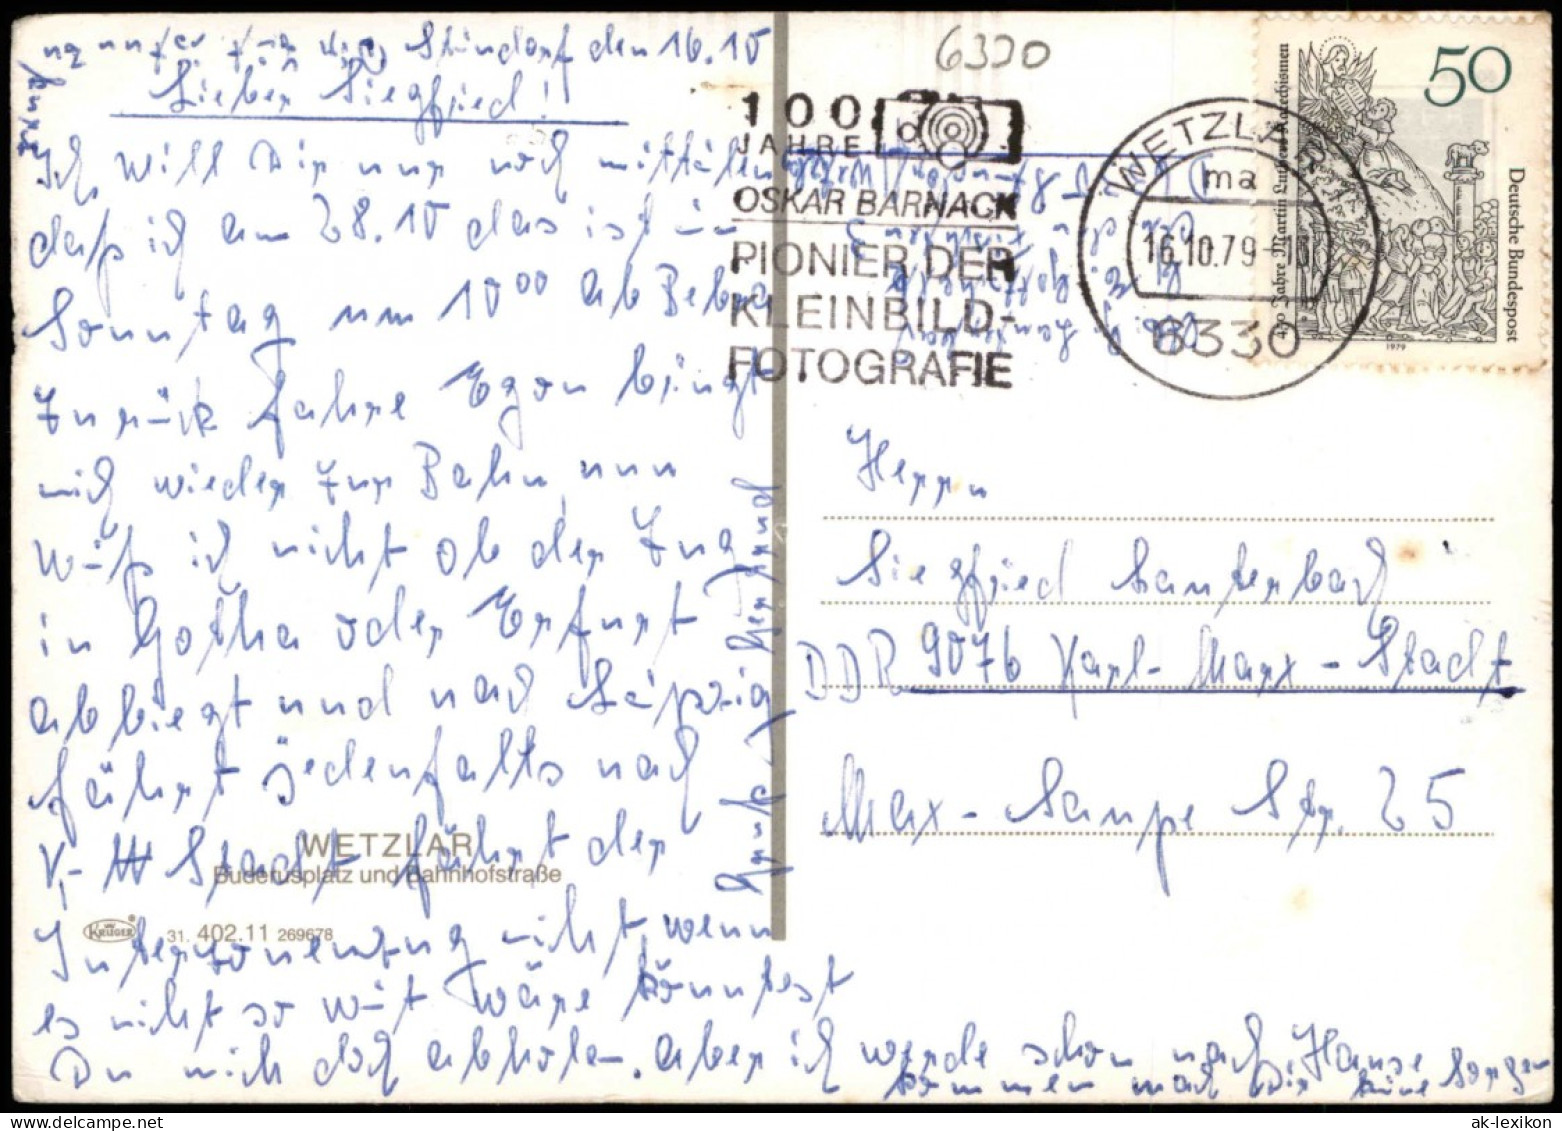 Steindorf den 16.10
Lieber Siegfried!
Ich will Dir nur noch mitteilen
daß ich am 28.10 das ist ein
Sonntag um 10 00 ab Bebra
zurück fahre Egon bringt
mich wieder zur Bahn, nun
weiß ich nicht ob der Zug
in Gotha oder Erfurt
abbiegt und nach Leipzig
fährt jedenfalls nach
K.-M Stadt fährt der
Interzonenzug nicht, wenn
es nicht so weit wäre könntest
Du mich doch abholen. aber ich werde schon nach Hause
kommen mach Dir keine Sorgen
WETZLAR
Buderusplatz und Bahnhofstraße
KRÜGER
31. 402.11 269678
6330
100
JAHRE
OSKAR BARNACK
PIONIER DER
KLEINBILD-
FOTOGRAFIE
WETZLAR
ma
16.10.79-16
6330
50
Deutsche Bundespost
450 Jahre Martin Luthers Katechismen
1979
Herrn
Siegfried Lauterbach
DDR 9076 Karl-Marx-Stadt
Max-Saupe Str. 25
ak-lexikon.com